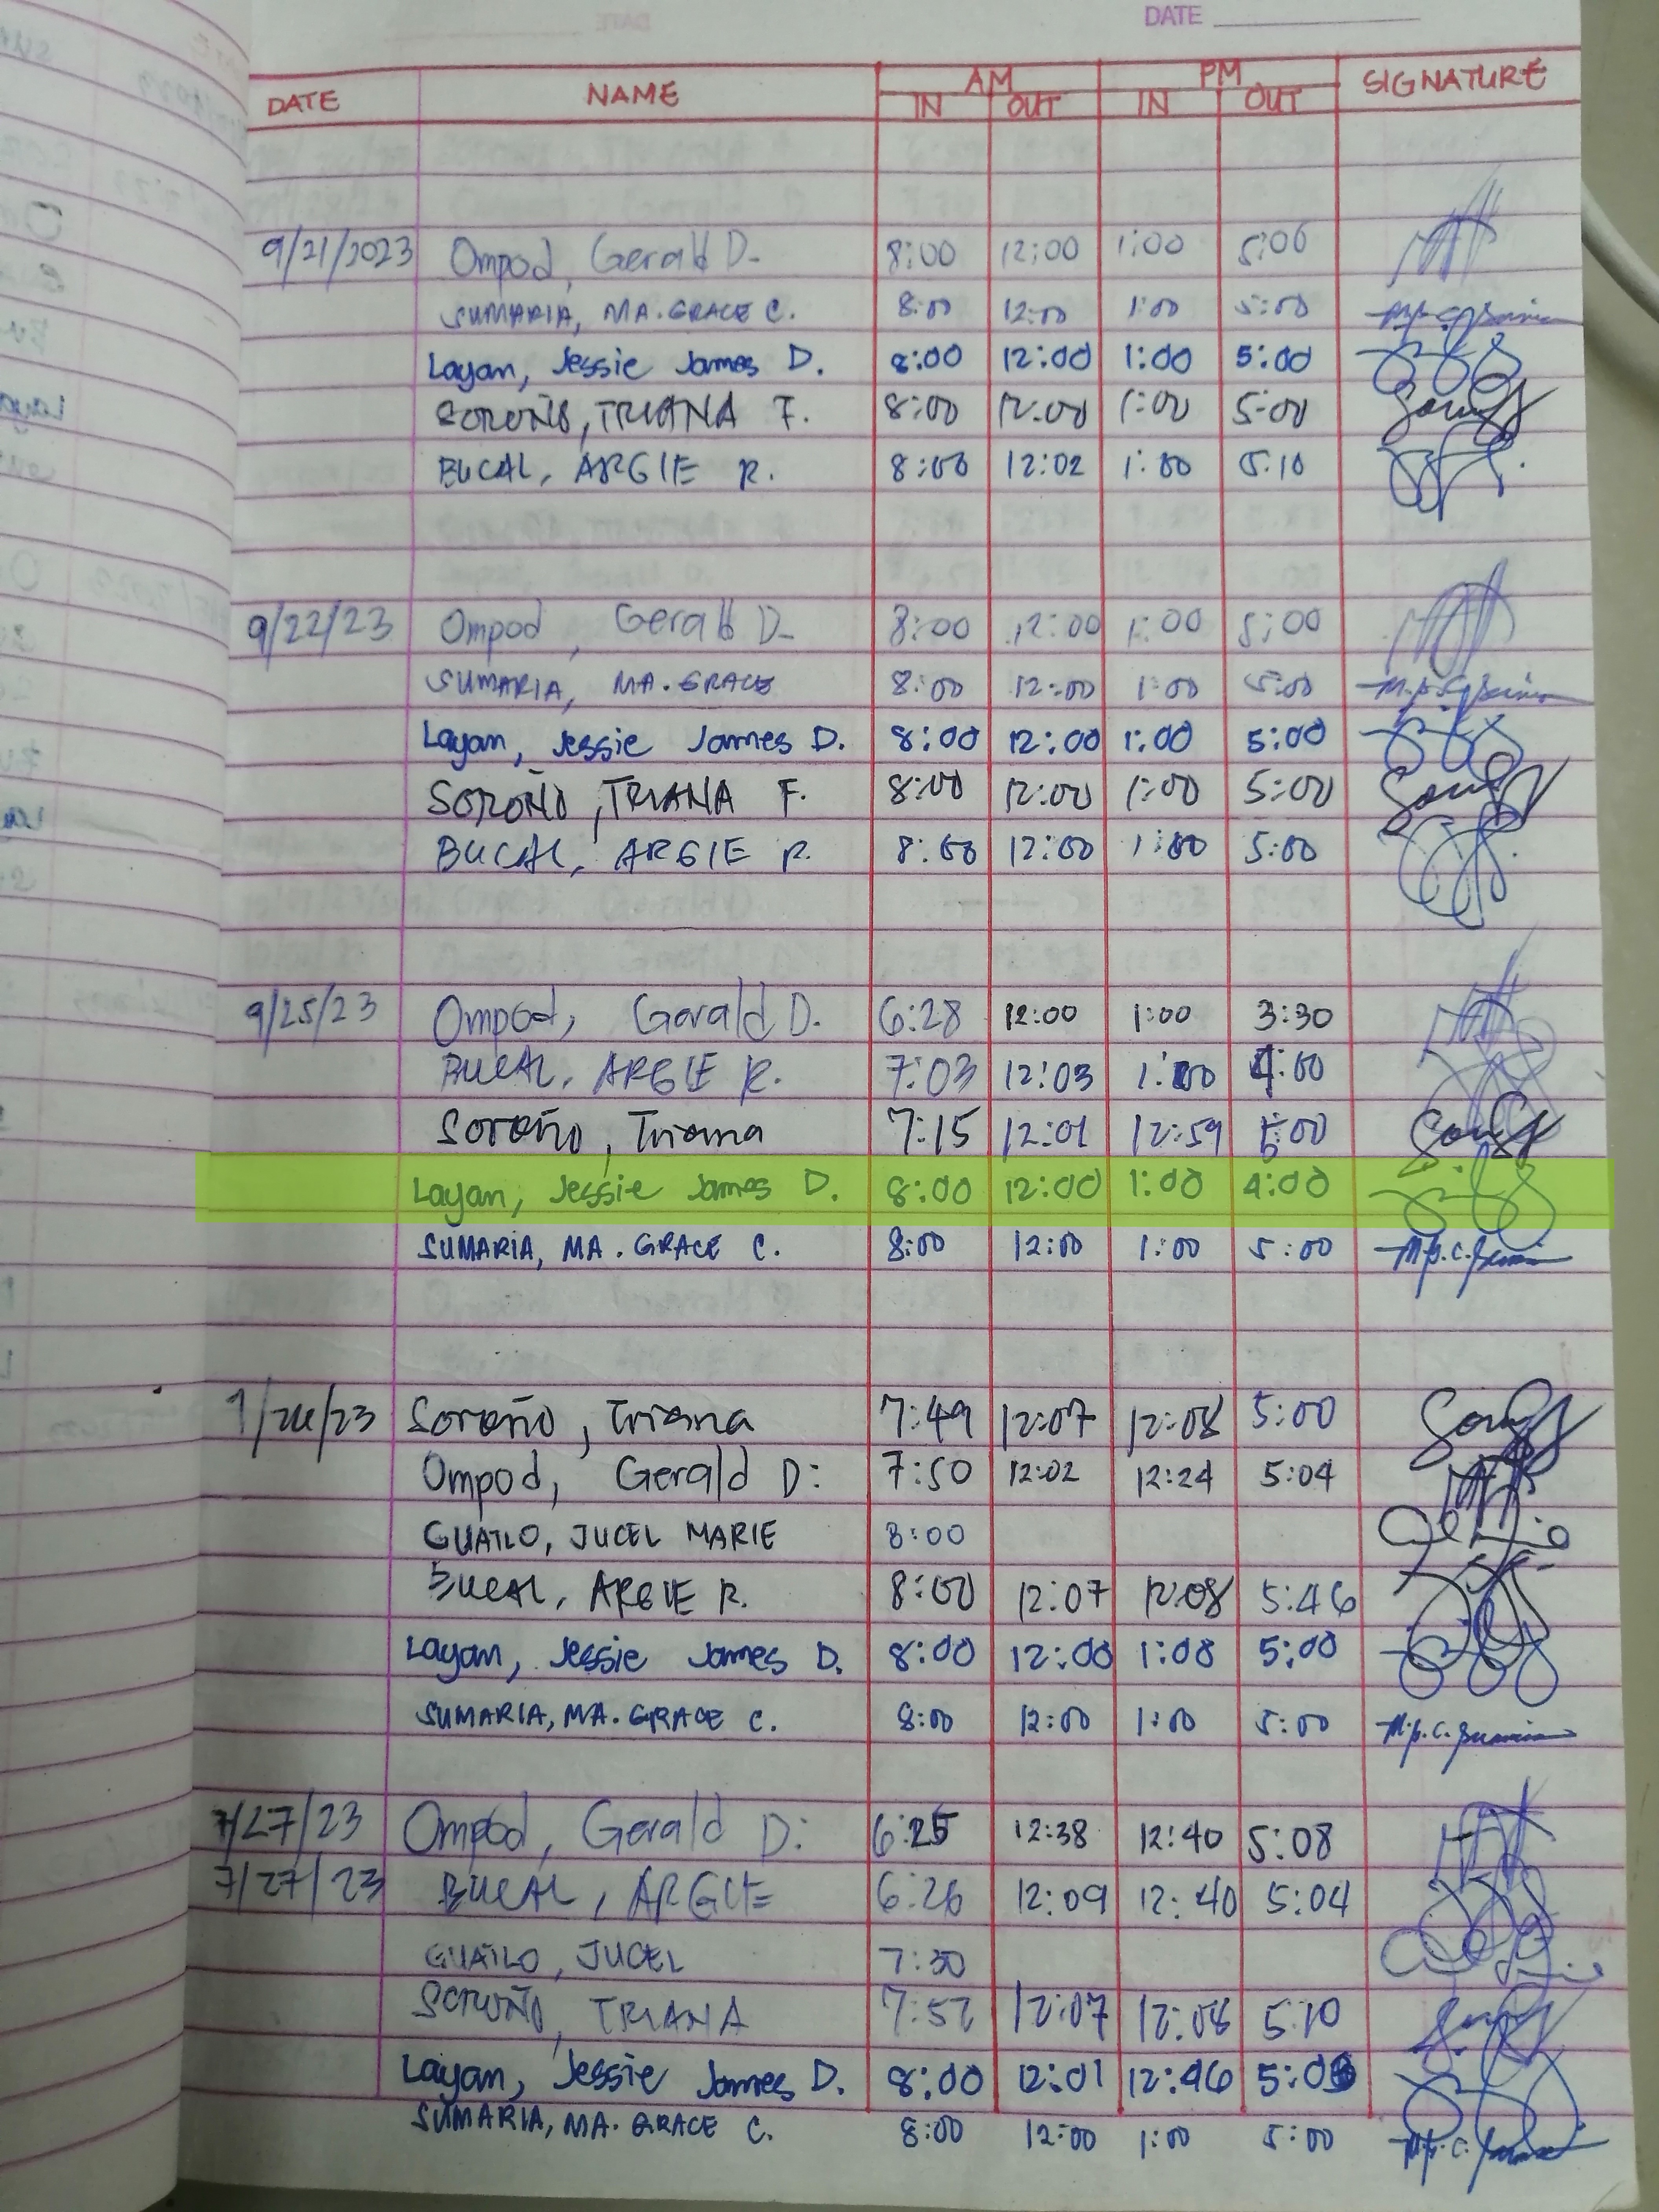 DATE
DATE NAME AM PM SIGNATURE
IN OUT IN OUT
9/21/2023 Ompod, Gerald D. 8:00 12:00 1:00 5:06
SUMARIA, MA. GRACE C. 8:00 12:00 1:00 5:00
Layan, Jessie James D. 8:00 12:00 1:00 5:00
SOROÑO, TRIANA F. 8:00 12:00 1:00 5:00
BUCAL, ARGIE R. 8:00 12:02 1:00 5:10
9/22/23 Ompod, Gerald D. 8:00 12:00 1:00 5:00
SUMARIA, MA. GRACE 8:00 12:00 1:00 5:00
Layan, Jessie James D. 8:00 12:00 1:00 5:00
SOROÑO, TRIANA F. 8:00 12:00 1:00 5:00
BUCAL, ARGIE R. 8:00 12:00 1:00 5:00
9/25/23 Ompod, Gerald D. 6:28 12:00 1:00 3:30
BUCAL, ARGIE R. 7:03 12:03 1:00 4:00
Soroño, Triana 7:15 12:01 12:59 5:00
Layan, Jessie James D. 8:00 12:00 1:00 4:00
SUMARIA, MA. GRACE C. 8:00 12:00 1:00 5:00
Soroño, Triana 7:49 12:07 12:08 5:00
Ompod, Gerald D: 7:50 12:02 12:24 5:04
GUATLO, JUCEL MARIE 8:00
BUCAL, ARGIE R. 8:00 12:07 12:08 5:46
Layan, Jessie James D. 8:00 12:00 1:08 5:00
SUMARIA, MA. GRACE C. 8:00 12:00 1:00 5:00
7/27/23 Ompod, Gerald D: 6:25 12:38 12:40 5:08
7/27/23 BUCAL, ARGIE 6:26 12:09 12:40 5:04
GUATLO, JUCEL 7:30
SOROÑO, TRIANA 7:52 12:07 12:08 5:10
Layan, Jessie James D. 8:00 12:01 12:46
SUMARIA, MA. GRACE C. 8:00 12:00 1:00 5:00